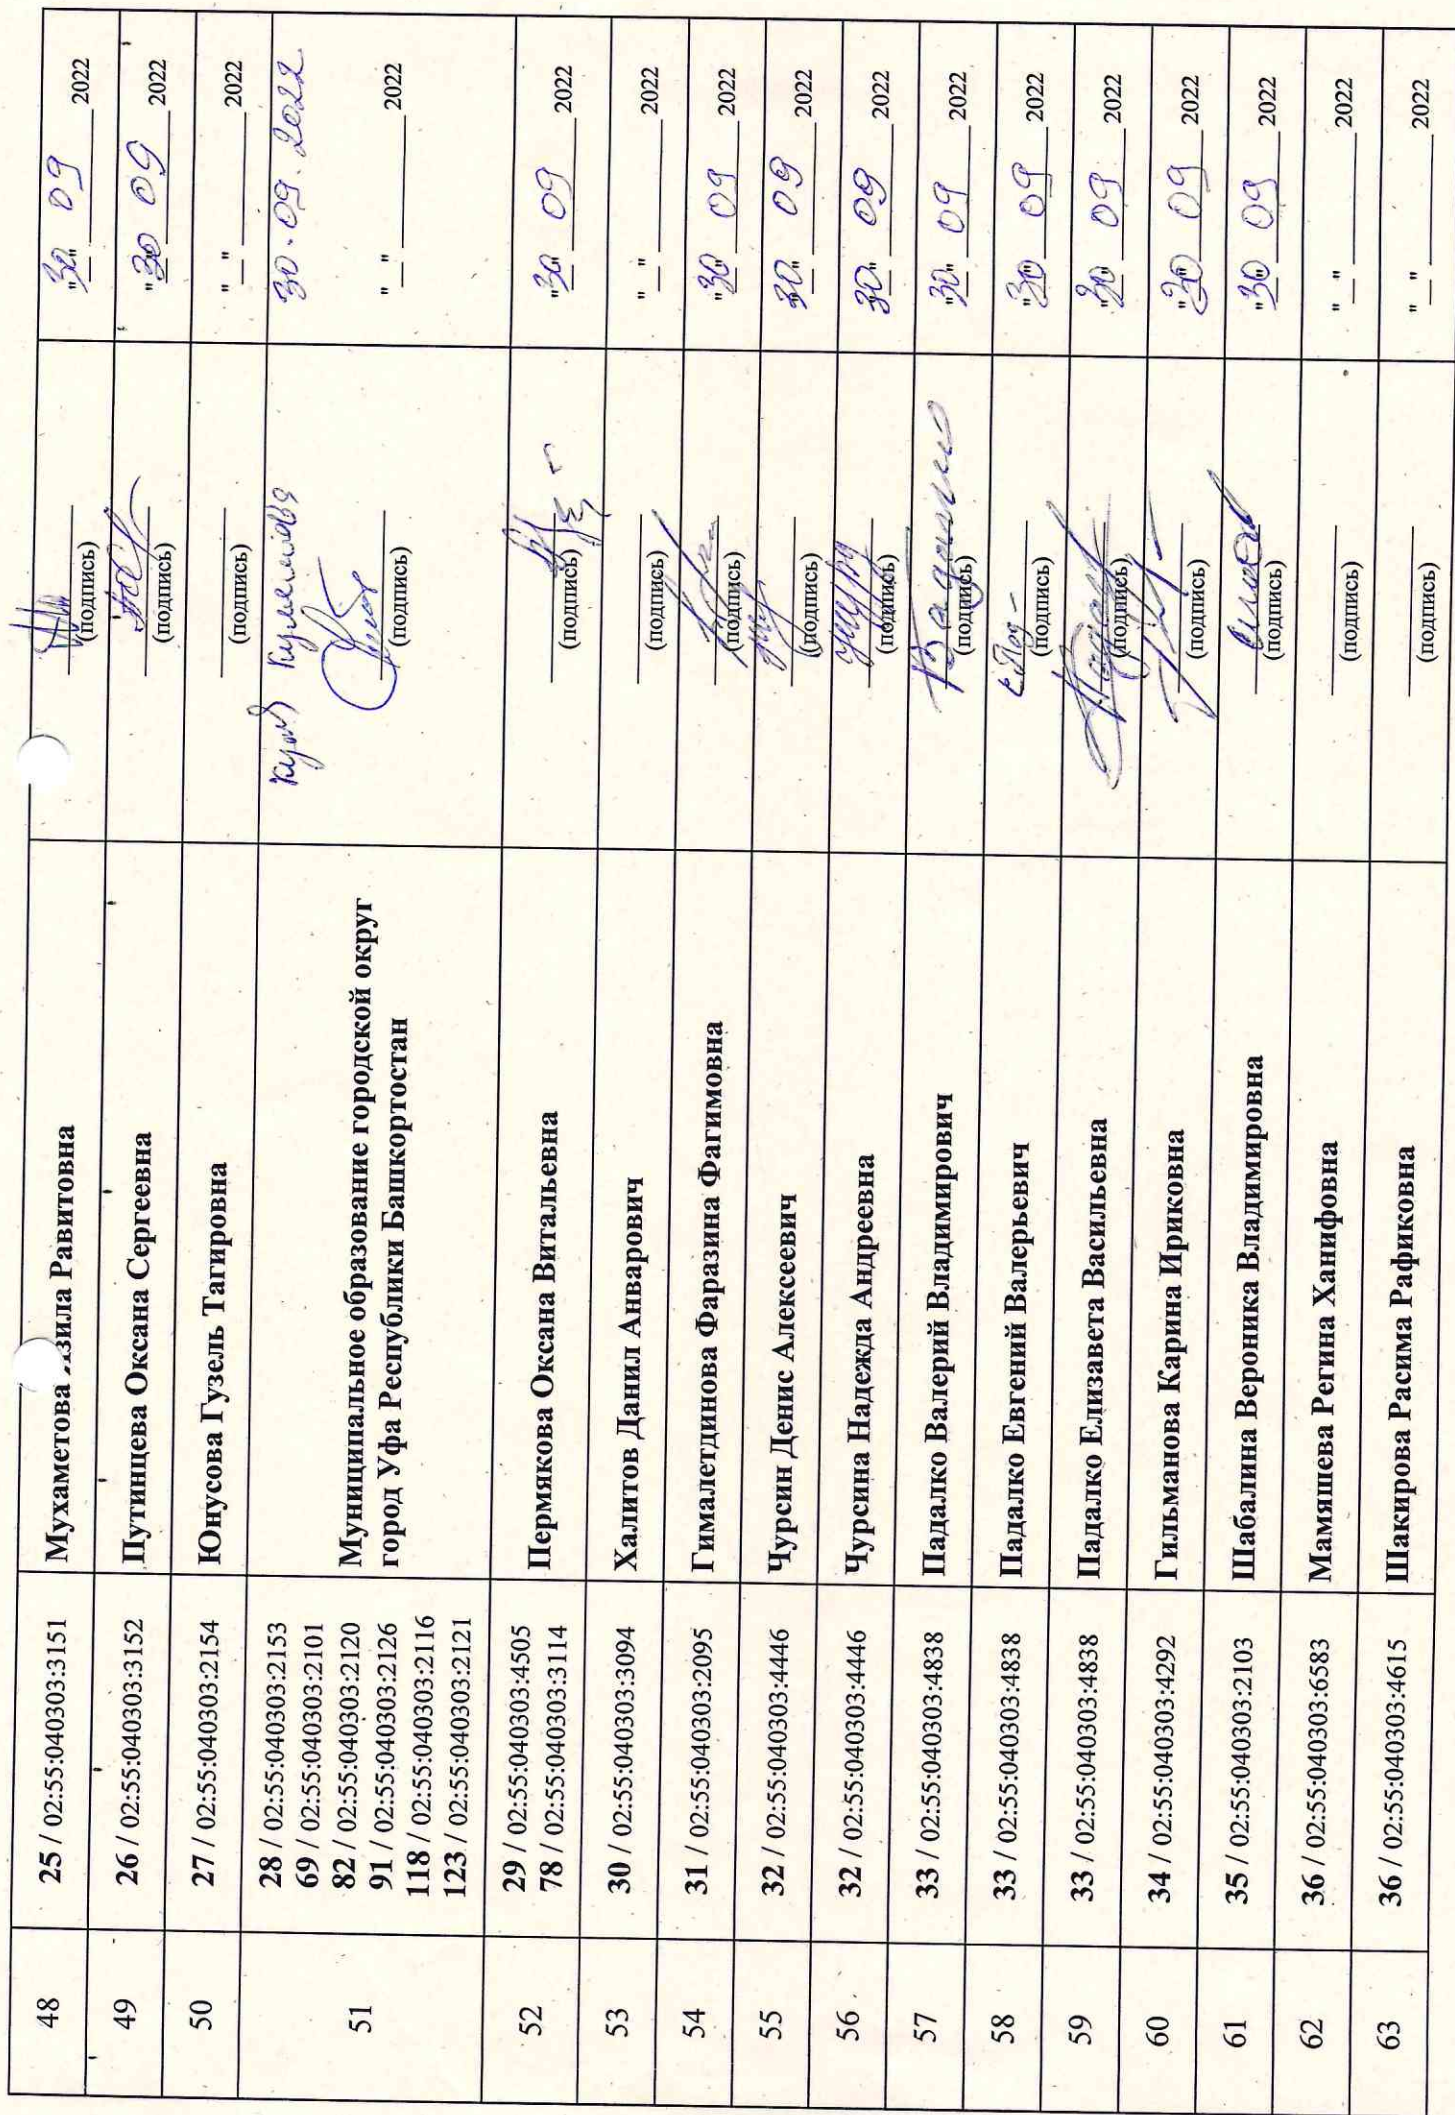 48 25 / 02:55:040303:3151 Мухаметова зила Равитовна (подпись) "30" 09 2022
49 26 / 02:55:040303:3152 Путинцева Оксана Сергеевна (подпись) "30" 09 2022
50 27 / 02:55:040303:2154 Юнусова Гузель Тагировна (подпись) "__" ______ 2022
51 28 / 02:55:040303:2153
69 / 02:55:040303:2101
82 / 02:55:040303:2120
91 / 02:55:040303:2126
118 / 02:55:040303:2116
123 / 02:55:040303:2121
Муниципальное образование городской округ
город Уфа Республики Башкортостан
30.09.2022
(подпись) "__" ______ 2022
52 29 / 02:55:040303:4505
78 / 02:55:040303:3114
Пермякова Оксана Витальевна (подпись) "30" 09 2022
53 30 / 02:55:040303:3094 Халитов Данил Анварович (подпись) "__" ______ 2022
54 31 / 02:55:040303:2095 Гималетдинова Фаразина Фагимовна (подпись) "30" 09 2022
55 32 / 02:55:040303:4446 Чурсин Денис Алексеевич (подпись) "30" 09 2022
56 32 / 02:55:040303:4446 Чурсина Надежда Андреевна (подпись) "30" 09 2022
57 33 / 02:55:040303:4838 Падалко Валерий Владимирович (подпись) "30" 09 2022
58 33 / 02:55:040303:4838 Падалко Евгений Валерьевич (подпись) "30" 09 2022
59 33 / 02:55:040303:4838 Падалко Елизавета Васильевна (подпись) "30" 09 2022
60 34 / 02:55:040303:4292 Гильманова Карина Ириковна (подпись) "30" 09 2022
61 35 / 02:55:040303:2103 Шабалина Вероника Владимировна (подпись) "30" 09 2022
62 36 / 02:55:040303:6583 Мамяшева Регина Ханифовна (подпись) "__" ______ 2022
63 36 / 02:55:040303:4615 Шакирова Расима Рафиковна (подпись) "__" ______ 2022